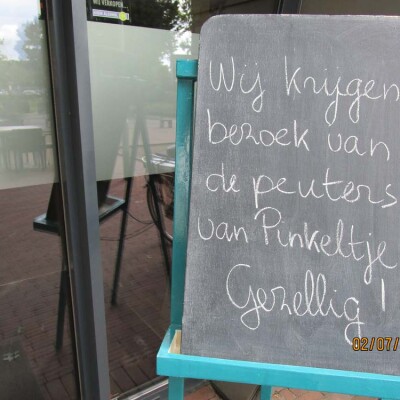 WIJ VERKOPEN
Wij krijgen
bezoek van
de peuters
van Pinkeltje
Gezellig!
02/07/